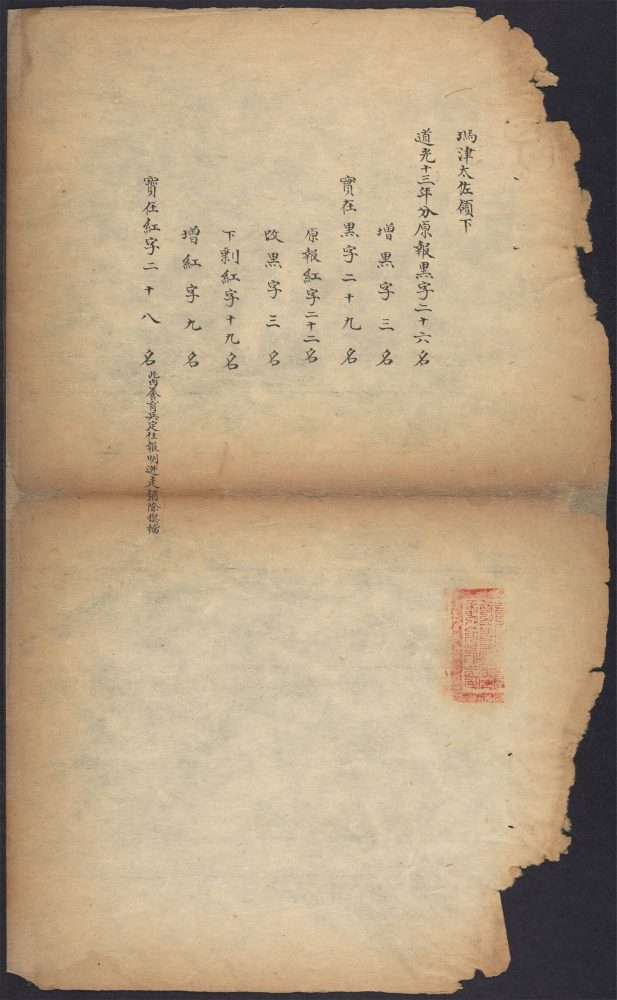 瑪津太佐領下
道光十三年分原報黑字二十六名
增黑字三名
實在黑字二十九名
原報紅字二十二名
改黑字三名
下剩紅字十九名
增紅字九名
實在紅字二十八名此內養育兵定住報明逃走銷除旗檔